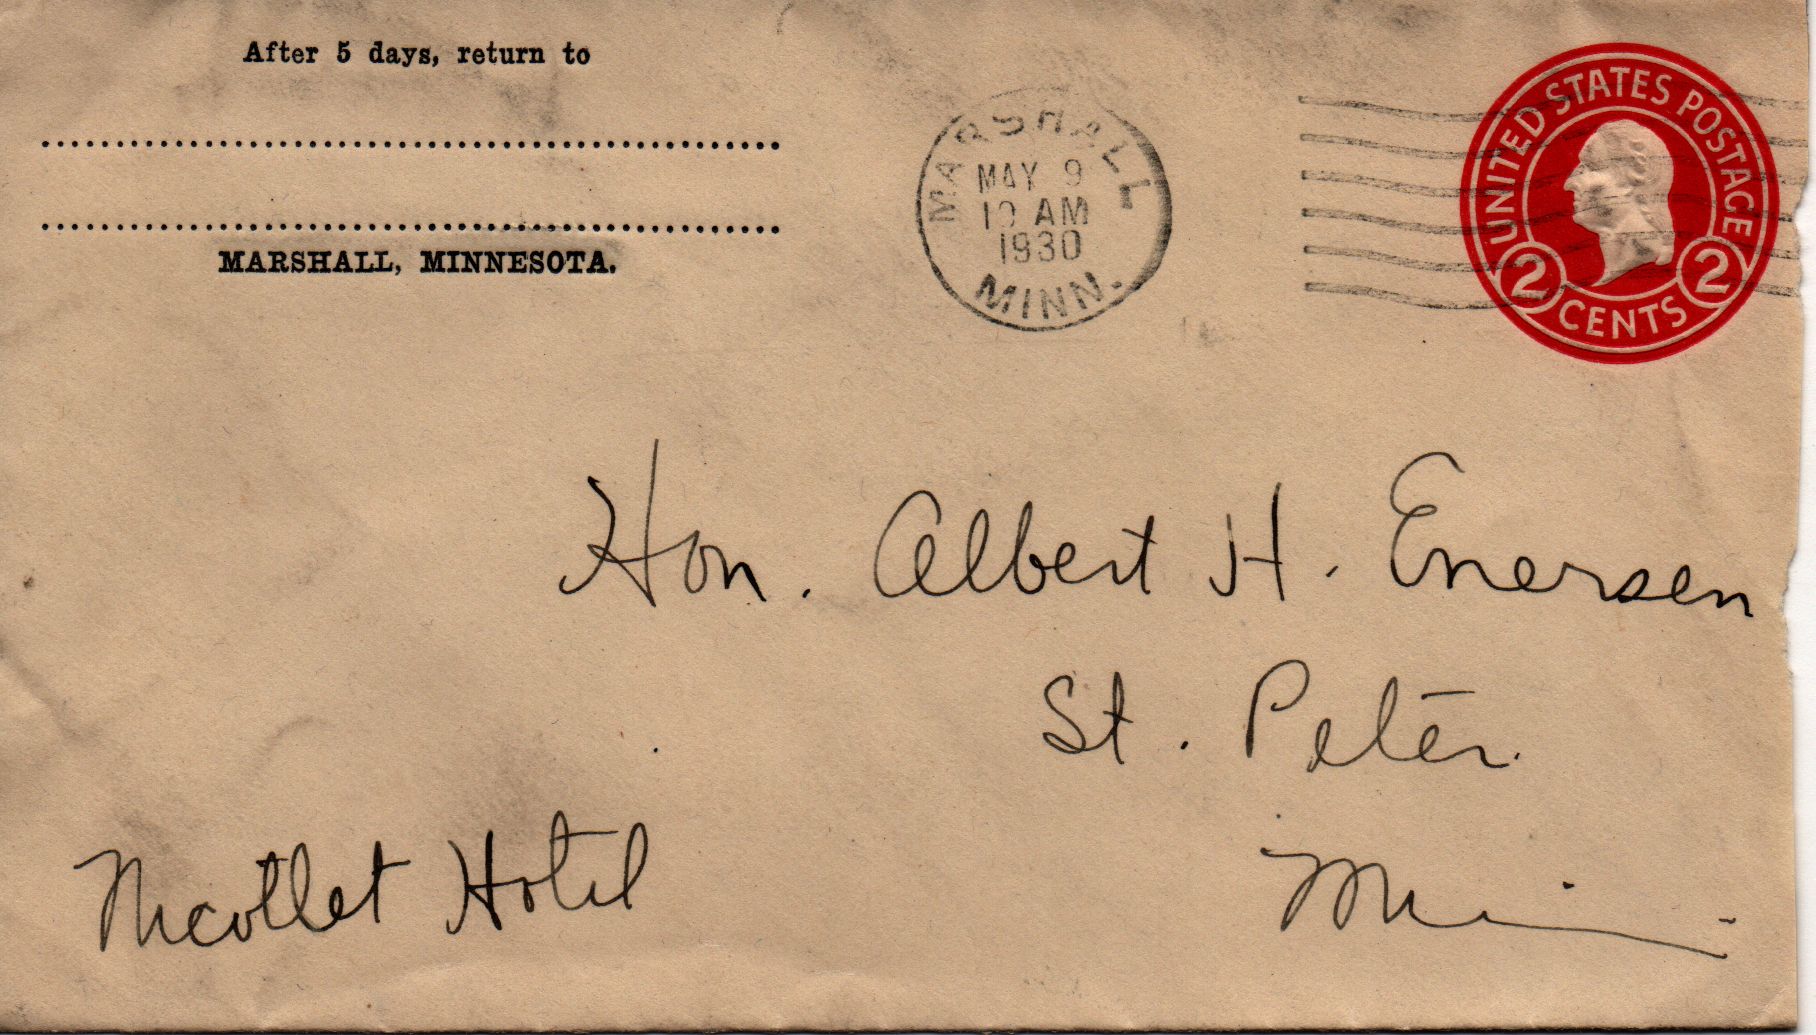 After 5 days, return to
MARSHALL, MINNESOTA.
MARSHALL
MAY 9
10 AM
1930
MINN.
UNITED STATES POSTAGE
2 CENTS 2
Hon. Albert H. Enersen
St. Peter.
Minn.
Nicollet Hotel